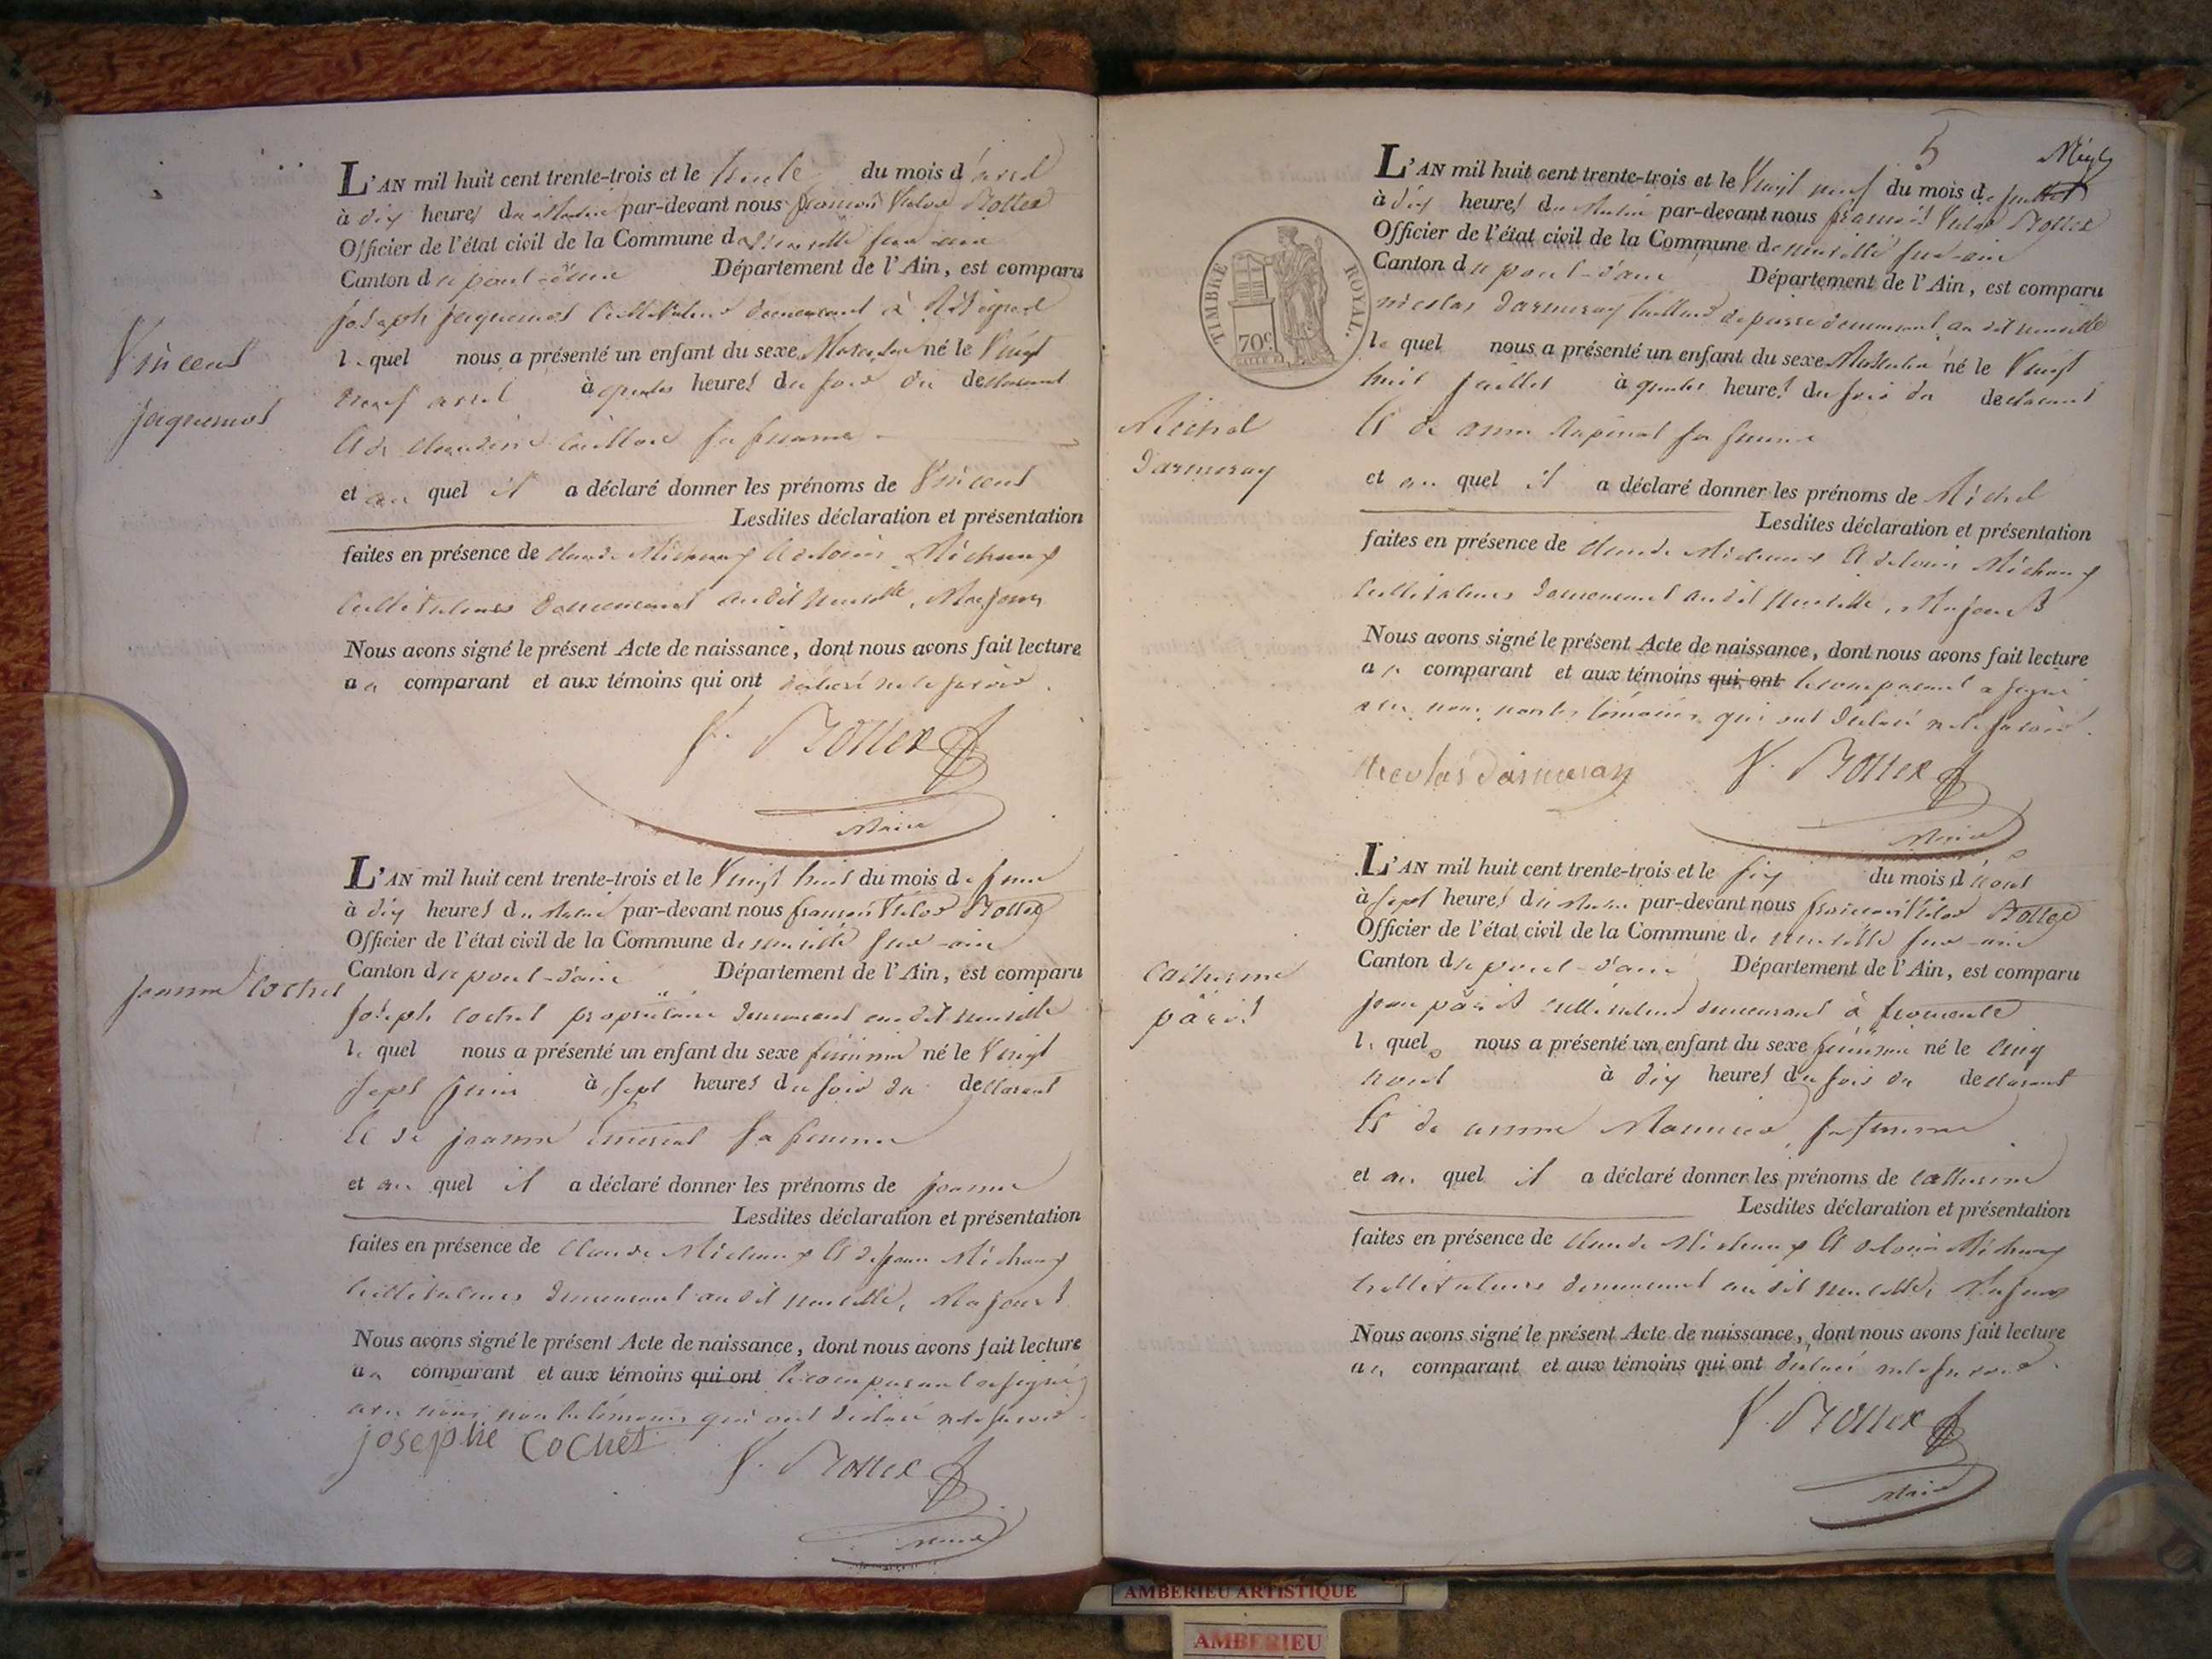 L'AN mil huit cent trente-trois et le trente du mois d'avril
à dix heures du matin par-devant nous françois Victor Bottex
Officier de l'état civil de la Commune de neuville sur ain
Canton du pont-d'ain Département de l'Ain, est comparu
joseph jaquemet Cultivateur demeurant à
Vincent
jaquemet
lequel nous a présenté un enfant du sexe Masculin né le Vingt
neuf avril à quatre heures du soir du declarant
Et de Claudine sa femme
et au quel il a déclaré donner les prénoms de Vincent
Lesdites déclaration et présentation
faites en présence de claude Michaux et de louis Michaux
Cultivateurs demeurant au dit neuville, Majeurs
Nous avons signé le présent Acte de naissance, dont nous avons fait lecture
au comparant et aux témoins qui ont déclaré ne le savoir.
V. Bottex
Maire
L'AN mil huit cent trente-trois et le Vingt huit du mois de juin
à dix heures du matin par-devant nous françois Victor Bottex
Officier de l'état civil de la Commune de neuville sur-ain
Canton du pont-d'ain Département de l'Ain, est comparu
jeanne Cochet
joseph cochet propriétaire demeurant au dit neuville
lequel nous a présenté un enfant du sexe féminin né le Vingt
sept juin à sept heures du soir du declarant
Et de jeanne sa femme
et au quel il a déclaré donner les prénoms de jeanne
Lesdites déclaration et présentation
faites en présence de Claude Michaux Et de jean Michaux
Cultivateurs demeurant au dit neuville, Majeurs
Nous avons signé le présent Acte de naissance, dont nous avons fait lecture
au comparant et aux témoins qui ont le comparant a signé
avec nous non les témoins qui ont déclaré ne le savoir.
josephe Cochet V. Bottex
Maire
5
L'AN mil huit cent trente-trois et le Vingt neuf du mois de juillet
à dix heures du matin par-devant nous françois Victor Bottex
Officier de l'état civil de la Commune de neuville sur-ain
Canton du pont-d'ain Département de l'Ain, est comparu
TIMBRE ROYAL.
70c
nicolas Darmeray tailleur de pierre demeurant au dit neuville
lequel nous a présenté un enfant du sexe Masculin né le Vingt
huit juillet à quatre heures du soir du declarant
Michel
Darmeray
Et de anne sa femme
et au quel il a déclaré donner les prénoms de Michel
Lesdites déclaration et présentation
faites en présence de claude Michaux Et de louis Michaux
Cultivateurs demeurant au dit neuville, Majeurs
Nous avons signé le présent Acte de naissance, dont nous avons fait lecture
au comparant et aux témoins qui ont le comparant a signé
avec nous non les témoins qui ont déclaré ne le savoir.
nicolas Darmeray V. Bottex
Maire
L'AN mil huit cent trente-trois et le six du mois d'aout
à sept heures du matin par-devant nous françois Victor Bottex
Officier de l'état civil de la Commune de neuville sur-ain
Canton du pont-d'ain Département de l'Ain, est comparu
Catherine
pâris
jean pâris cultivateur demeurant à fromente
lequel nous a présenté un enfant du sexe féminin né le cinq
aout à dix heures du soir du declarant
Et de anne sa femme
et au quel il a déclaré donner les prénoms de catherine
Lesdites déclaration et présentation
faites en présence de claude Michaux Et de louis Michaux
Cultivateurs demeurant au dit neuville, Majeurs
Nous avons signé le présent Acte de naissance, dont nous avons fait lecture
au comparant et aux témoins qui ont déclaré ne le savoir.
V. Bottex
Maire
AMBERIEU ARTISTIQUE
AMBERIEU